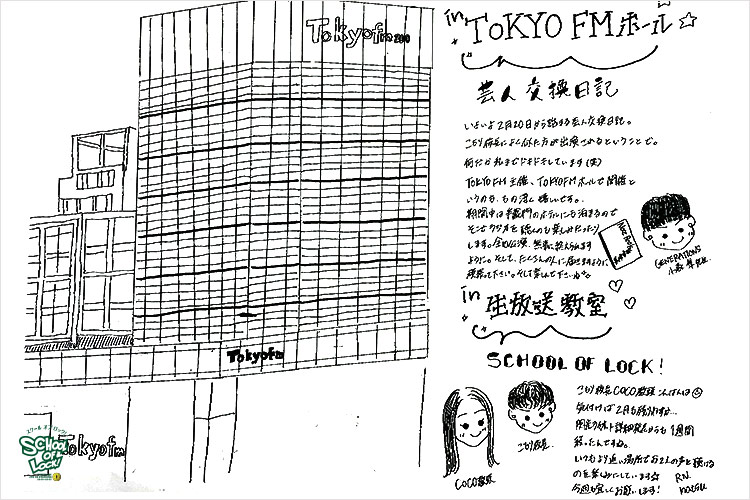 Tokyofm
in TOKYO FM ホール☆
芸人交換日記
いよいよ2月20日から始まる芸人交換日記。
こもり校長によく似た方が出演されるということで。
何だか私までドキドキしています(笑)
TOKYO FM主催、TOKYO FMホールで開催と
いうのも、もの凄く嬉しいです。
期間中は半蔵門のホテルにも泊まるので
そこでラジオを聴くのも楽しみだったり
します。全公演、無事に終えられます
ように。そして、たくさんの人に届きますように。
GENERATIONS
in 生放送教室
SCHOOL OF LOCK!
Tokyofm
こもり校長COCO教頭こんばんは☺
気付けば2月も
1週間
経ったんですね。
いつもより近い場所でお2人の声を聴ける
のを楽しみにしています☆
今週も宜しくお願いします!
RN
こもり校長
COCO教頭
Tokyofm
スクール オブ ロック!
SCHOOL OF LOCK!